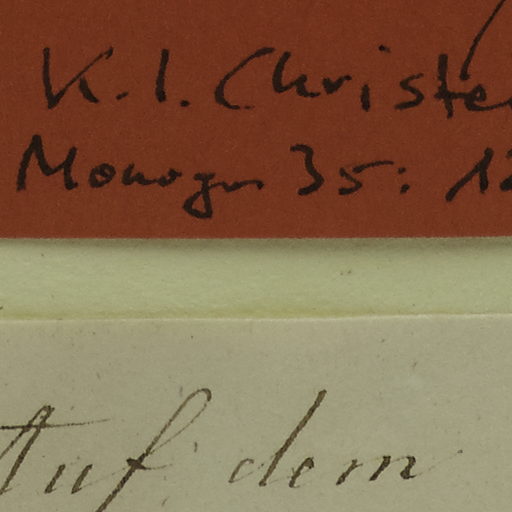 K. I. Christe
Monogr 35: 12
Auf dem